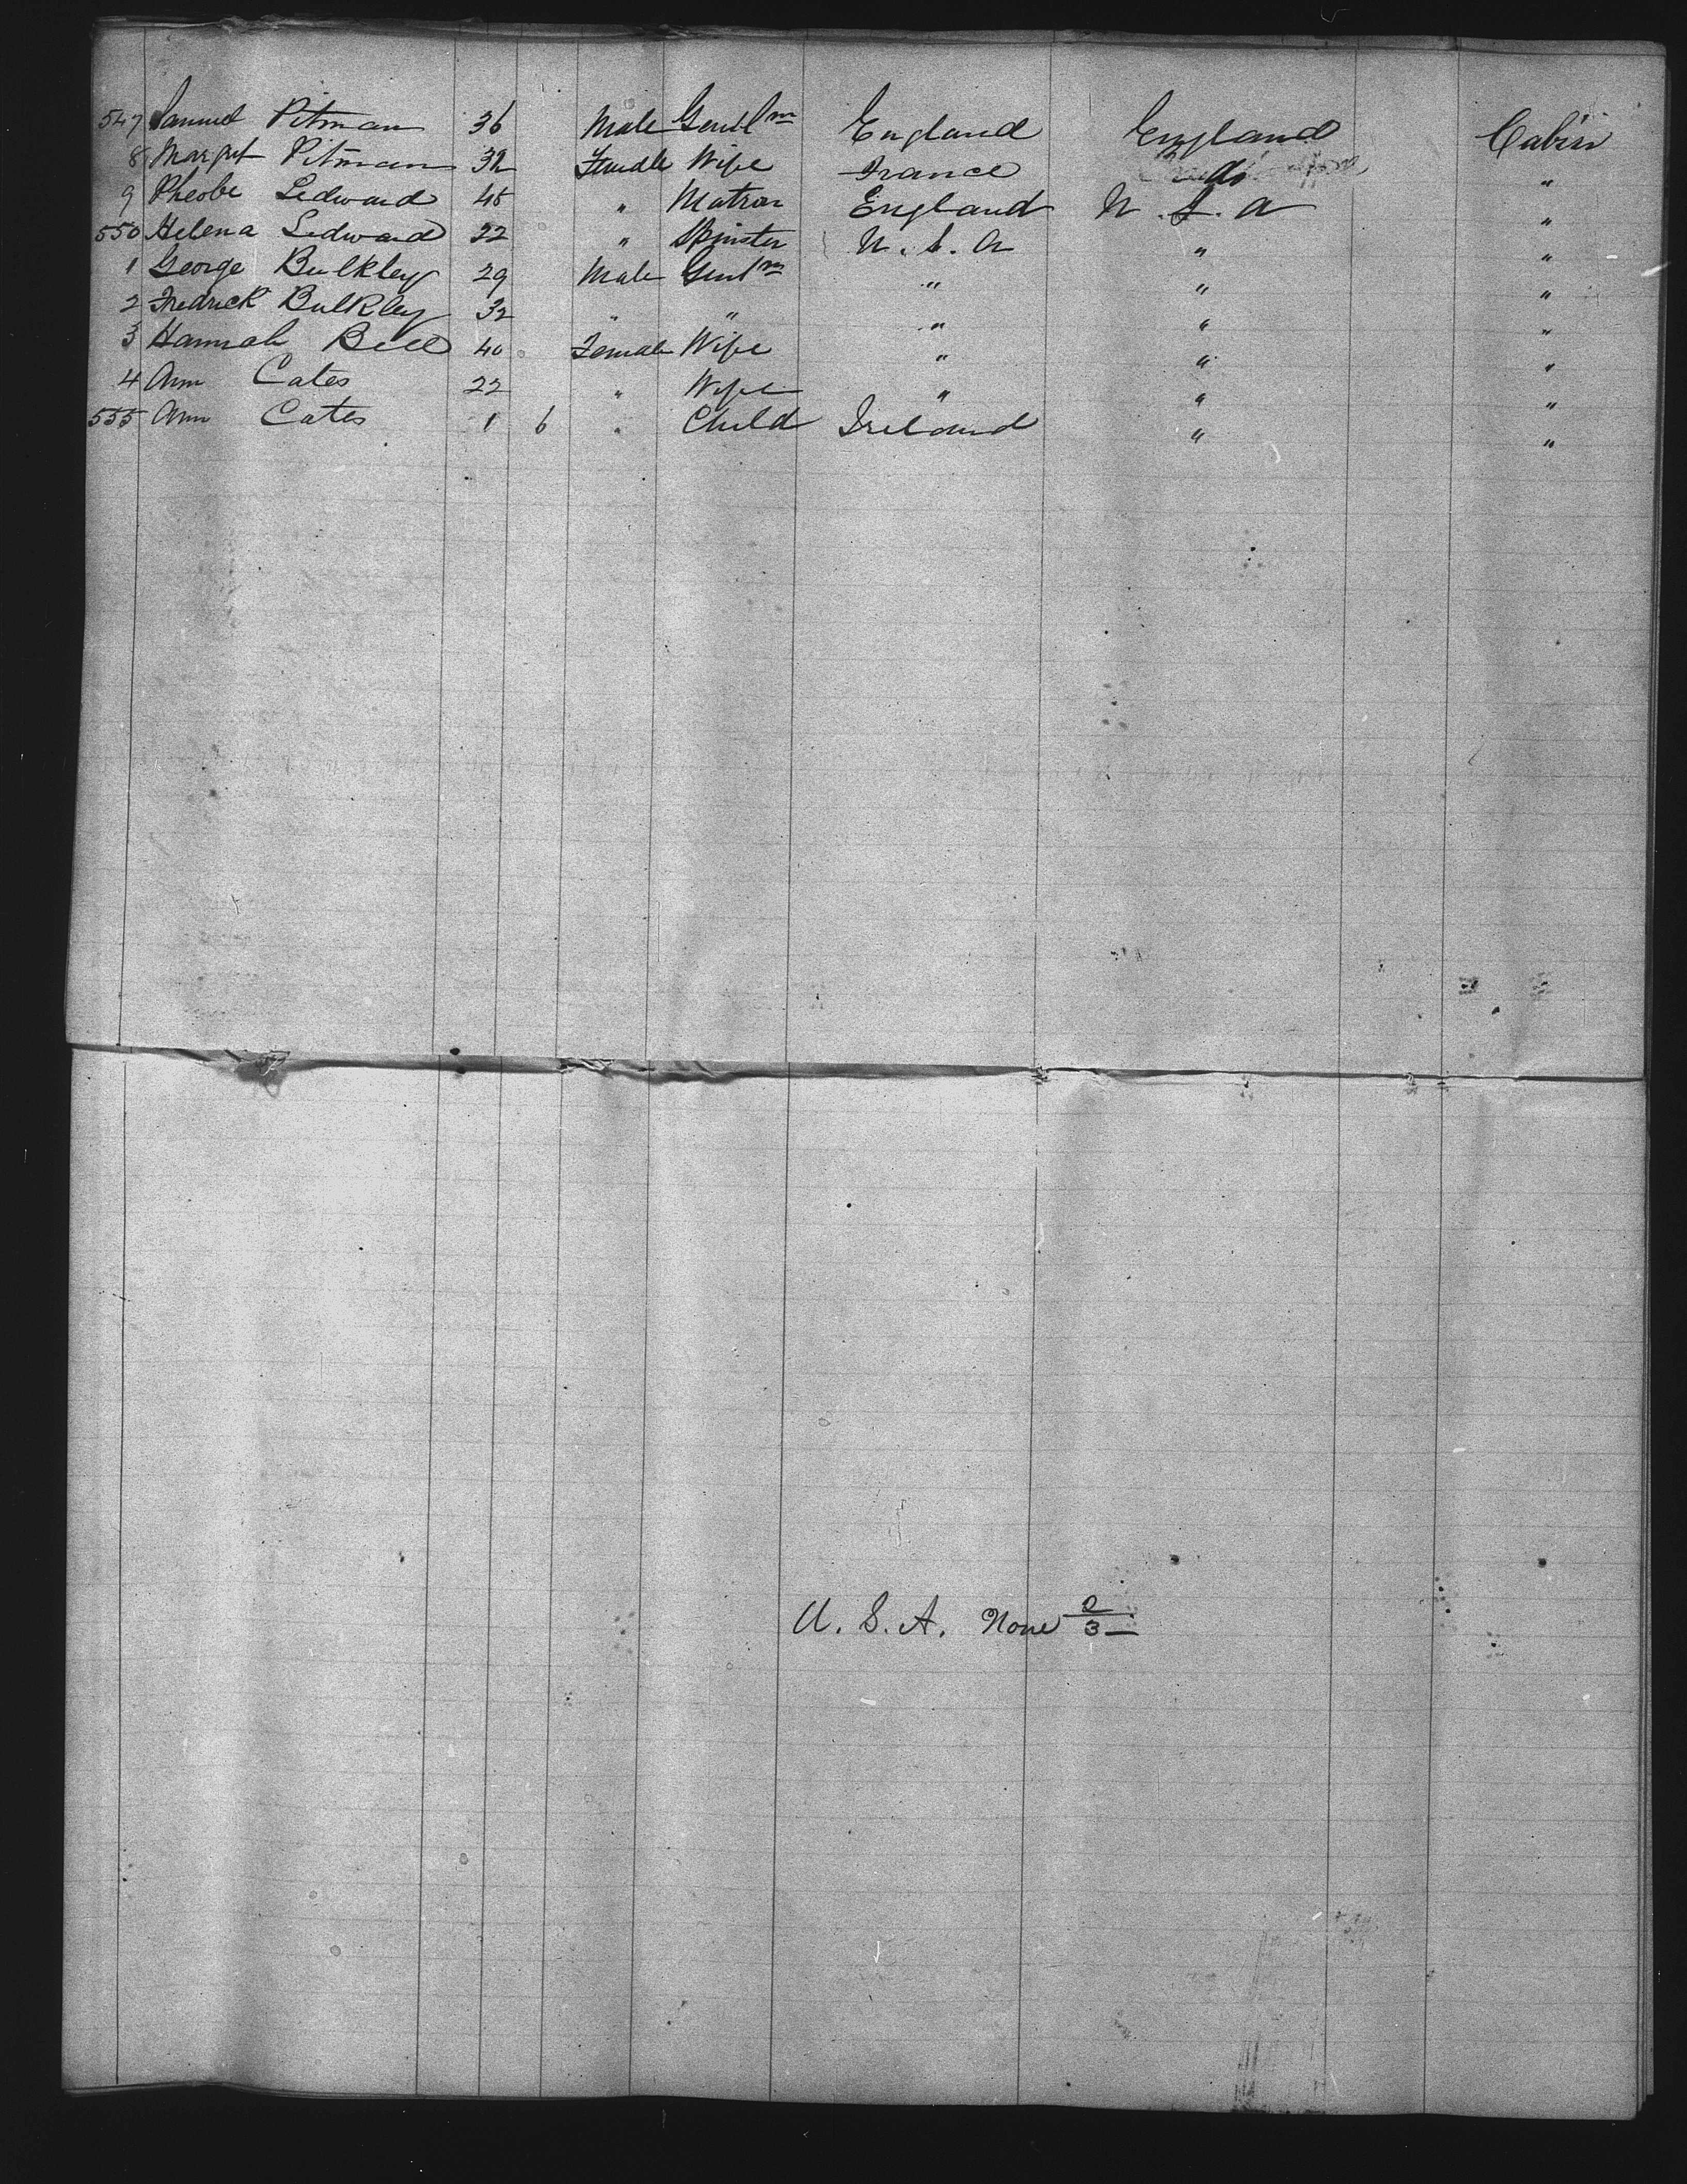 547 Samuel Pitman 36 Male Gentlm England England Cabin
8 Margret Pitman 32 Female Wife France do "
9 Pheobe Ledward 45 " Matron England U.S.A "
550 Helena Ledward 22 " Spinster U.S.A " "
1 George Bulkley 29 Male Gentm " " "
2 Fredrick Bulkley 32 " " " " "
3 Hannah Bell 40 Female Wife " " "
4 Ann Cates 22 " Wife " " "
555 Ann Cates 1 6 " Child Ireland " "
U. S. A. None 2/3